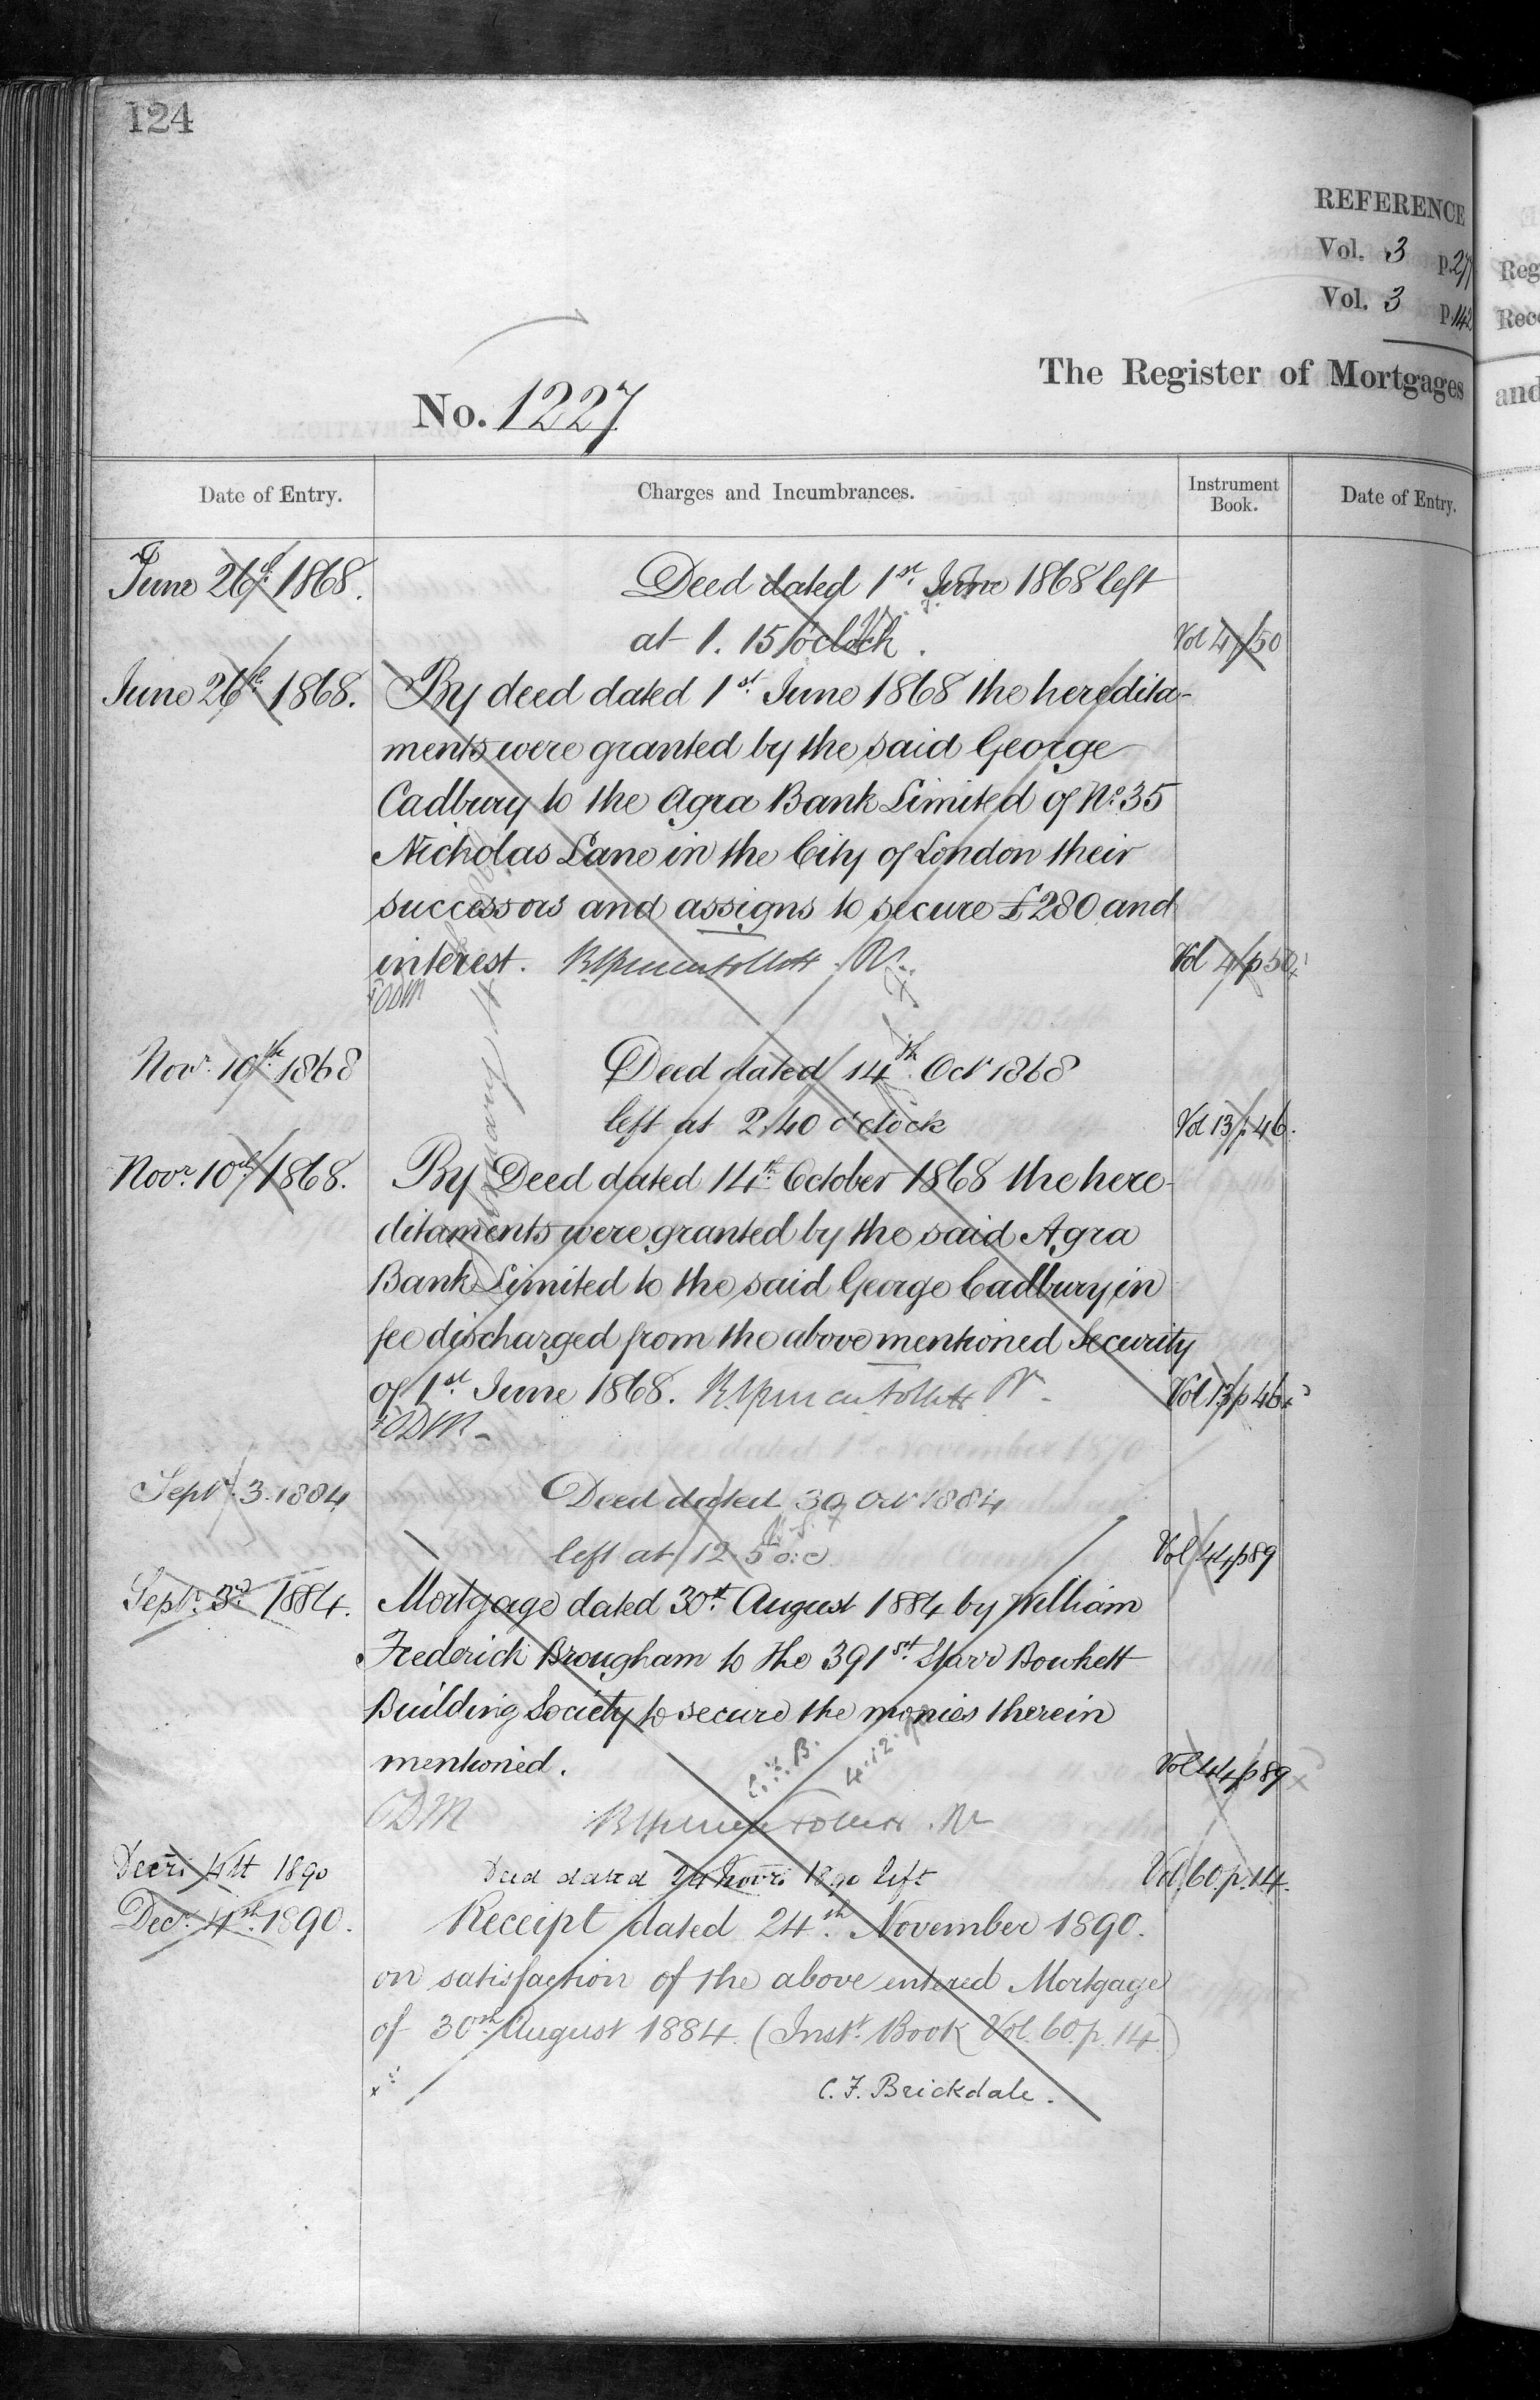 124
REFERENCE
Vol. 3 p. 277
Vol. 3 p. 142
The Register of Mortgages
No. 1227
Date of Entry. Charges and Incumbrances. Instrument Book. Date of Entry.
June 26th 1868. Deed dated 1st June 1868 left
at 1. 15 o'clock. Vol 4 p 50
June 26th 1868. By deed dated 1st June 1868 the heredita-
ments were granted by the said George
Cadbury to the Agra Bank Limited of No. 35
Nicholas Lane in the City of London their
successors and assigns to secure £280 and
interest. Vol 4 p 50
ODM
Novr. 10th 1868 Deed dated 14th Octr 1868
left at 2.40 o'clock Vol 13 p. 46.
Novr. 10th 1868. By Deed dated 14th October 1868 the here-
ditaments were granted by the said Agra
Bank Limited to the said George Cadbury in
fee discharged from the above mentioned Security
of 1st June 1868. Vol 13 p 46
ODM
Septr. 3. 1884 Deed dated 30 Octr 1884
left at 12.5 o.c. Vol 44 p 89
Septr. 3rd 1884. Mortgage dated 30th August 1884 by William
Frederick Brougham to the 391st Starr Bowkett
Building Society to secure the monies therein
mentioned. Vol 44 p 89
ODM
Decr. 4th 1890 Deed dated 24 Novr. 1890 left Vol. 60. p. 14.
Decr. 4th 1890. Receipt dated 24th November 1890.
on satisfaction of the above entered Mortgage
of 30th August 1884. (Inst. Book Vol. 60. p. 14)
C. F. Brickdale.
and